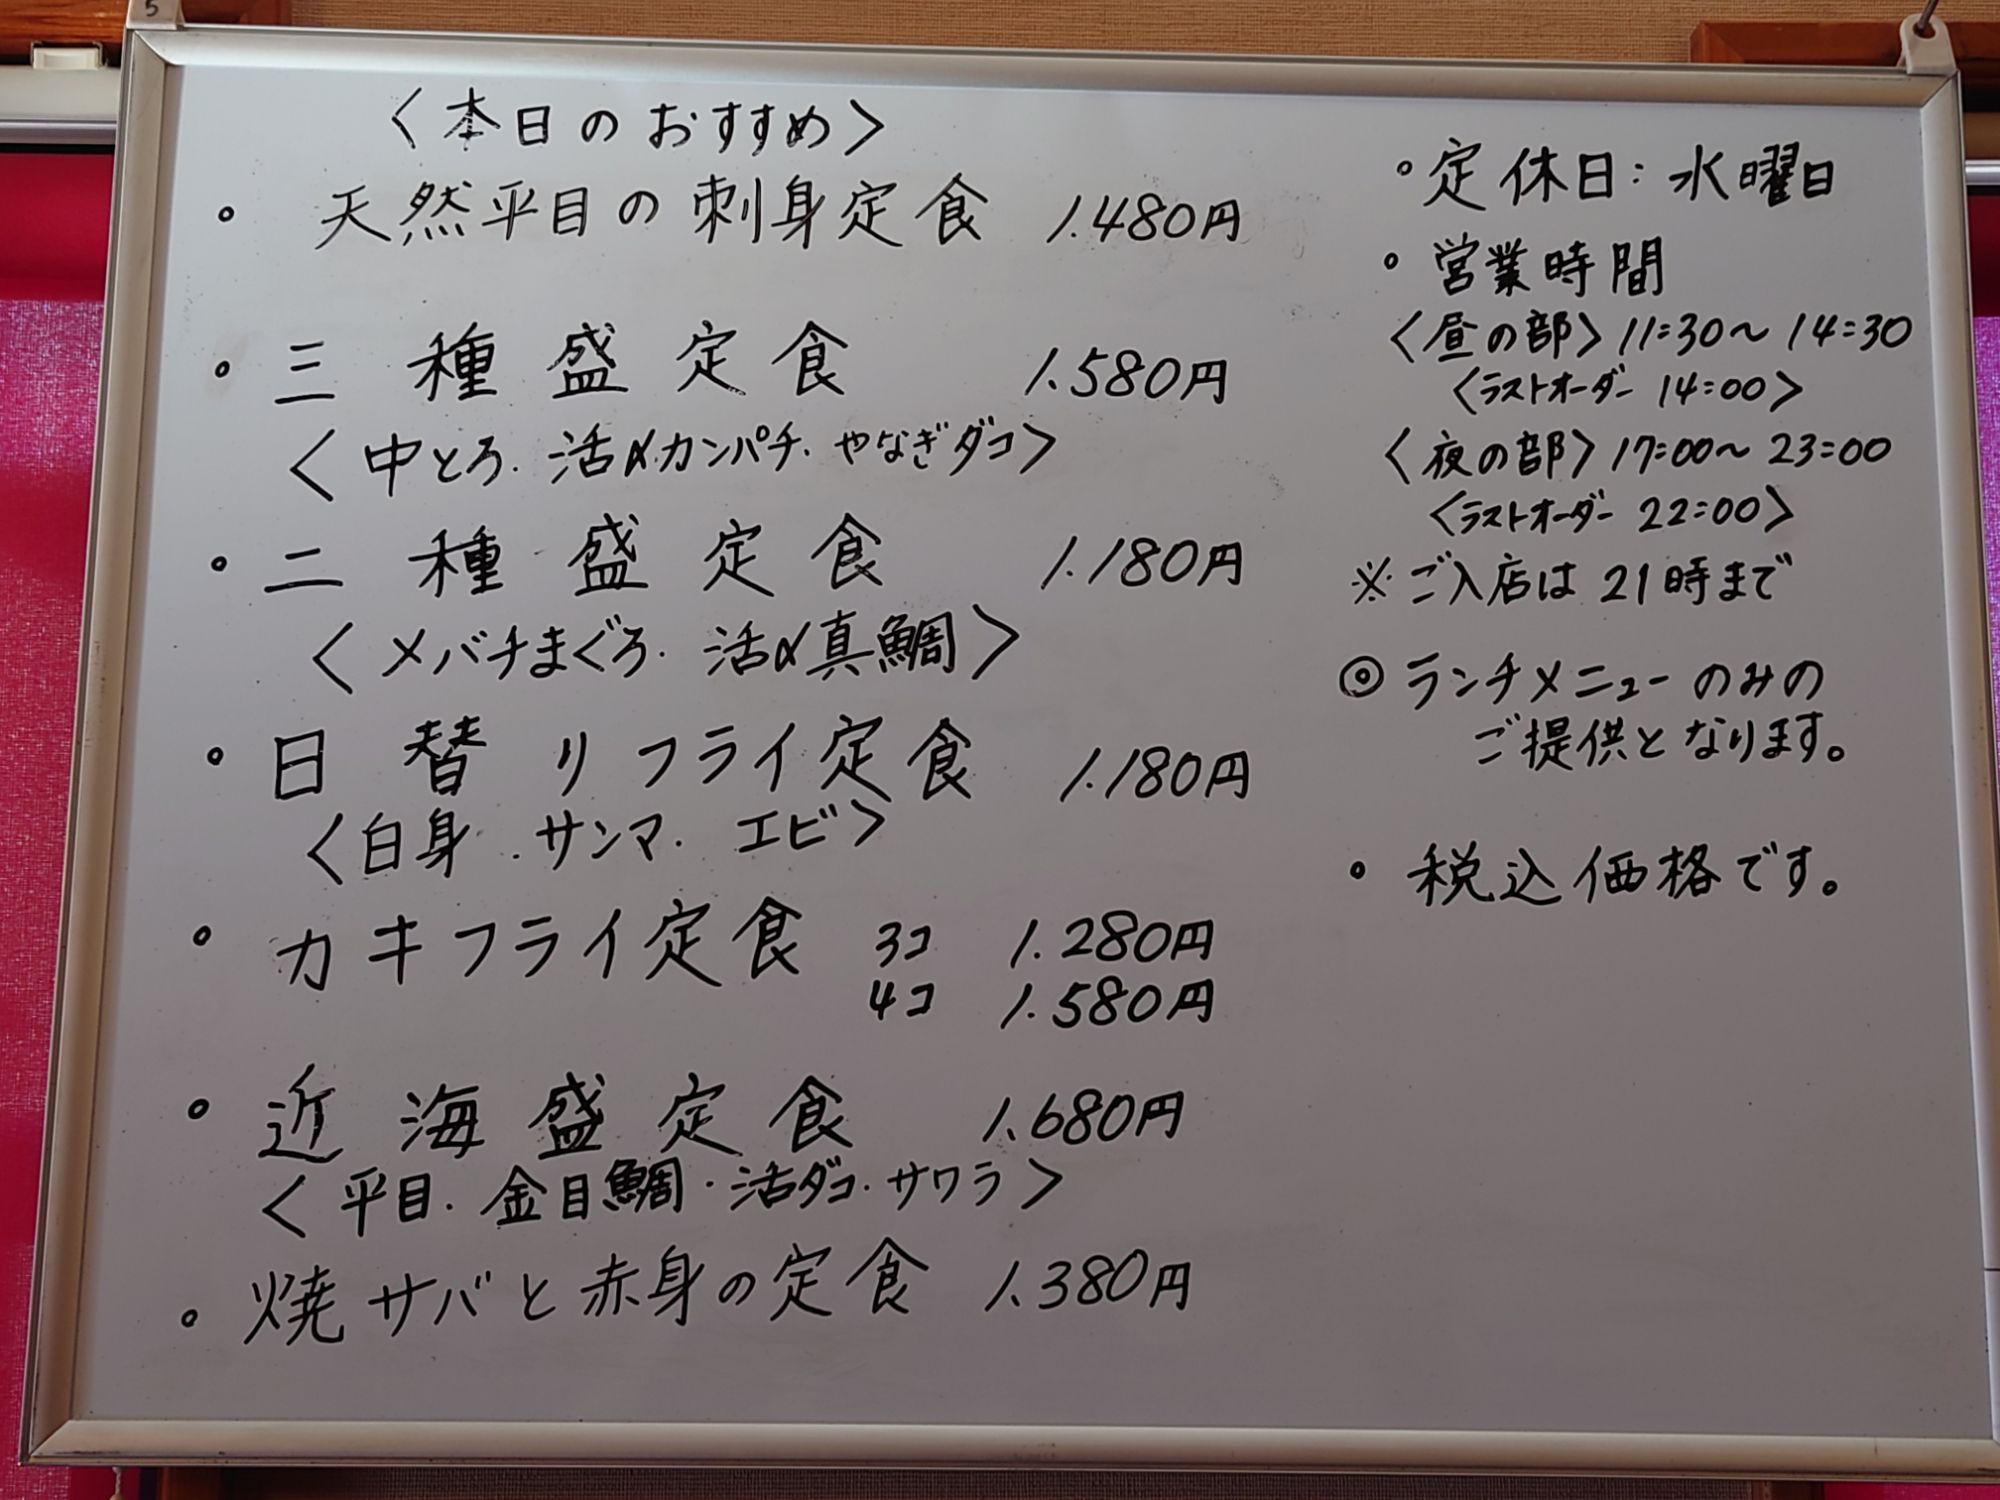 5
〈本日のおすすめ〉
。天然平目の刺身定食 1.480円
。三種盛定食 1.580円
〈中とろ.活〆カンパチ.やなぎダコ〉
。二種盛定食 1.180円
〈メバチまぐろ.活〆真鯛〉
。日替りフライ定食 1.180円
〈白身.サンマ.エビ〉
。カキフライ定食 3コ 1.280円
4コ 1.580円
。近海盛定食 1.680円
〈平目.金目鯛.活ダコ.サワラ〉
。焼サバと赤身の定食 1.380円
。定休日:水曜日
。営業時間
〈昼の部〉11:30〜14:30
〈ラストオーダー 14:00〉
〈夜の部〉17:00〜23:00
〈ラストオーダー 22:00〉
※ご入店は21時まで
◎ランチメニューのみの
ご提供となります。
。税込価格です。